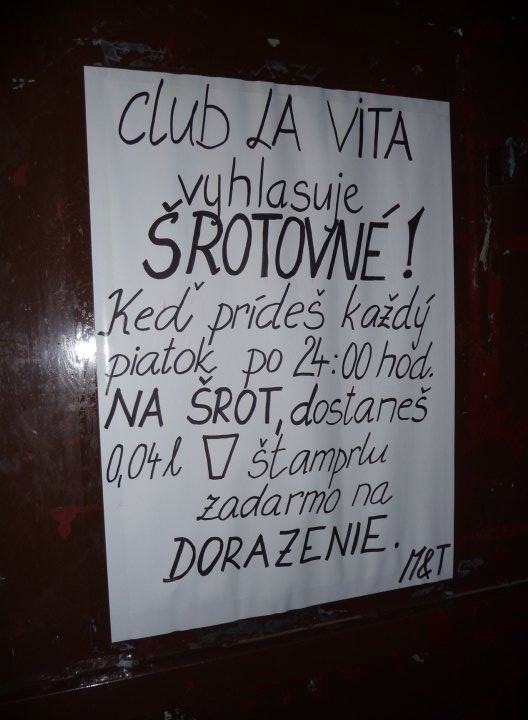 Club LA VITA
vyhlasuje
ŠROTOVNÉ!
Keď prídeš každý
piatok po 24:00 hod.
NA ŠROT, dostaneš
0,04l štamprlu
zadarmo na
DORAZENIE.
M&T